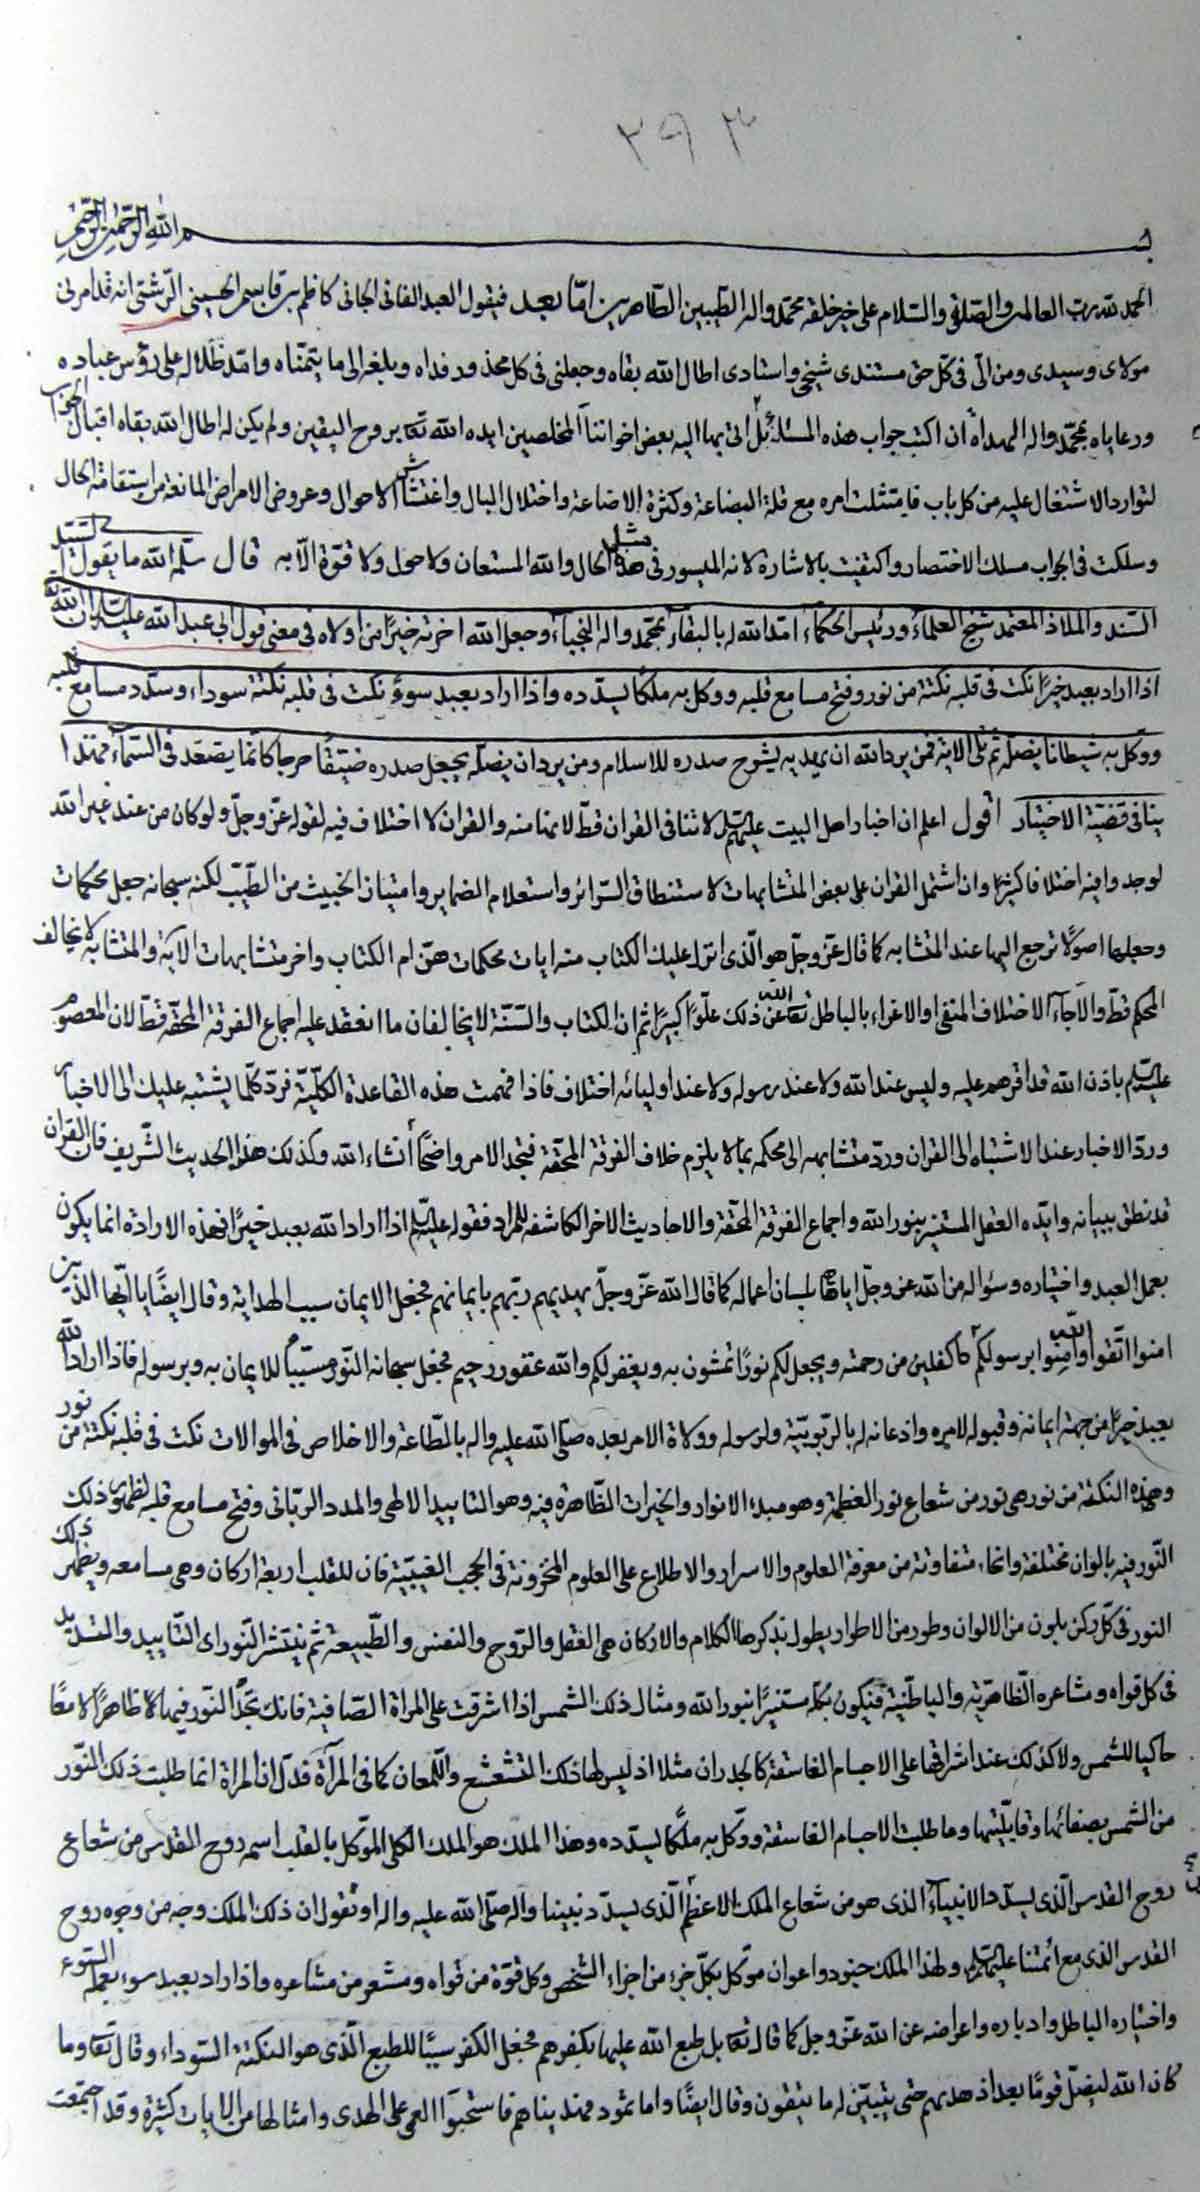 ٣٩٣
بسم الله الرحمن الرحيم
الحمد لله رب العالمين والصلوة والسلام على خير خلقه محمد واله الطيبين الطاهرين اما بعد فيقول العبد الفانى الجانى كاظم بن قاسم الحسينى الرشتى انه قد امرنى
مولاى وسيدى ومن الى فى كل حق مستندى شيخى واستادى اطال الله بقاه وجعلنى فى كل محذور فداه وبلغه الى ما يتمناه وامد ظلاله على رؤس عباده
ورعاياه بمحمد واله الهداة ان اكتب جواب هذه المسائل التى بها اليه بعض اخواننا المخلصين ايده الله تعالى بروح اليقين ولم يكن له اطال الله بقاه اقبال الجواب
لتوارد الاشتغال عليه من كل باب فامتثلت امره مع قلة البضاعة وكثرة الاضاعة واختلال البال واغتشاش الاحوال وعروض الامراض المانعة من استقامة الحال
وسلكت فى الجواب مسلك الاختصار واكتفيت بالاشارة لانه الميسور فى مثل هذا الحال والله المستعان ولا حول ولا قوة الا به قال سلمه الله ما يقول
السند والملاذ المعتمد شيخ العلماء ورئيس الحكماء امتد الله له بالبقاء بمحمد واله النجباء وجعل الله اخرته خيرا من اولاه فى معنى قول ابى عبد الله عليه السلام ان الله
اذا اراد بعبد خيرا نكت فى قلبه نكتة من نور وفتح مسامع قلبه ووكل به ملكا يسدده واذا اراد بعبد سوء نكت فى قلبه نكتة سوداء وسدد مسامع قلبه
ووكل به شيطانا يضله ثم تلى الاية فمن يرد الله ان يهديه يشرح صدره للاسلام ومن يرد ان يضله يجعل صدره ضيقا حرجا كانما يصعد فى السماء فهذا
ينافى قضية الاختيار اقول اعلم ان اخبار اهل البيت عليهم السلم لا تنافى القران قط لانها منه والقران لا اختلاف فيه لقوله عز وجل ولو كان من عند غير الله
لوجدوا فيه اختلافا كثيرا وان اشتمل القران على بعض المتشابهات لاستنطاق السرائر واستعلام الضماير وامتياز الخبيث من الطيب لكنه سبحانه جعل محكمات
وجعلها اصولا ترجع اليها عند المتشابه كما قال عز وجل هو الذى انزل عليك الكتاب منه ايات محكمات هن ام الكتاب واخر متشابهات الاية والمتشابه لا يخالف
المحكم قط والا جاء الاختلاف المنفى او الاغراء بالباطل تعالى الله عن ذلك علوا كبيرا ثم ان الكتاب والسنة لا يخالفان ما انعقد عليه اجماع الفرقة المحقة قط لان المعصوم
عليه السلم باذن الله قد اقرهم عليه وليس عند الله ولا عند رسوله ولا عند اوليائه اختلاف فاذا فهمت هذه القاعدة الكلية فرد كلما يشتبه عليك الى الاخبار
ورد الاخبار عند الاشتباه الى القران ورد متشابهه الى محكمه بما لا يلزم خلاف الفرقة المحقة فتجد الامر واضحا انشاء الله وكذلك هذا الحديث الشريف فان القران
قد نطق ببيانه وايده العقل المستنير بنور الله واجماع الفرقة المحقة والاحاديث الاخر الكاشفه للمراد فقوله عليه السلم اذا اراد الله بعبد خيرا فهذه الارادة انما يكون
بعمل العبد واختياره وسؤاله من الله عز وجل اياها بلسان اعماله كما قال الله عز وجل يهديهم ربهم بايمانهم فجعل الايمان سبب الهداية وقال ايضا يا ايها الذين
امنوا اتقوا الله وامنوا برسوله يؤتكم كفلين من رحمته ويجعل لكم نورا تمشون به ويغفر لكم والله غفور رحيم فجعل سبحانه النور مسببا للايمان به وبرسوله فاذا اراد الله
بعبد خيرا من جهة ايمانه وقبوله لامره واذعانه له بالربوبية ولرسوله وولاة الامر بعده صلى الله عليه واله بالطاعة والاخلاص فى الموالات نكت فى قلبه نكتة من نور
وهذه النكتة من نور هى نور من شعاع نور العظمة وهو مبدء الانوار والخيرات الظاهرة فيه وهو التاييد الالهى والمدد الربانى وفتح مسامع قلبه لظهور ذلك
النور فيه بالوان مختلفة وانحاء متفاوتة من معرفة العلوم والاسرار والاطلاع على العلوم المخزونة فى الحجب الغيبية فان للقلب اربعة اركان وهى مسامعه ويظهر ذلك
النور فى كل ركن بلون من الالوان وطور من الاطوار يطول بذكرها الكلام والاركان هى العقل والروح والنفس والطبيعة ثم ينتشر النور اى التاييد والتسديد
فى كل قواه ومشاعره الظاهرية والباطنية فيكون كله مستنيرا بنور الله ومثال ذلك الشمس اذا اشرقت على المراة الصافية فانك تجد النور فيها ظاهرا لامعا
حاكيا للشمس ولا كذلك عند اشراقها على الاجسام الغاسقة كالجدران مثلا اذ ليس لها ذلك التشعشع واللمعان كما فى المرآة قد ان المراة انما طلبت ذلك النور
من الشمس بصفائها وقابليتها وما طلبت الاجسام الغاسقة ووكل به ملكا يسدده وهذا الملك هو الملك الكلى الموكل بالقلب اسمه روح القدس من شعاع
روح القدس الذى يسدد الانبياء الذى هو من شعاع الملك الاعظم الذى يسدد نبينا واله صلى الله عليه واله او نقول ان ذلك الملك وجه من وجوه روح
القدس الذى مع ائمتنا عليهم السلم ولهذا الملك جنود واعوان موكل بكل جزء من اجزاء الشخص وكل قوة من قواه ومشعر من مشاعره واذا اراد بعبد سوء بعمله السوء
واختياره الباطل وادباره واعراضه عن الله عز وجل كما قال تعالى بل طبع الله عليها بكفرهم فجعل الكفر سببا للطبع الذى هو النكتة السوداء وقال تعالى وما
كان الله ليضل قوما بعد اذ هديهم حتى يتبين له ما يتقون وقال ايضا واما ثمود فهديناهم فاستحبوا العمى على الهدى وامثالها من الايات كثيرة وقد اجتمعت